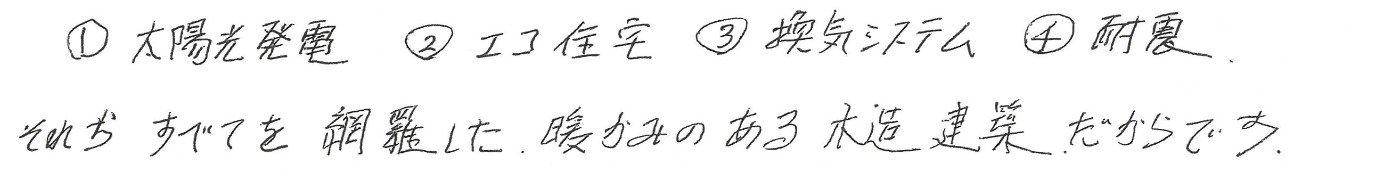 ① 太陽光発電 ② エコ住宅 ③ 換気システム ④ 耐震.
それらすべてを網羅した.暖かみのある木造建築.だからです.